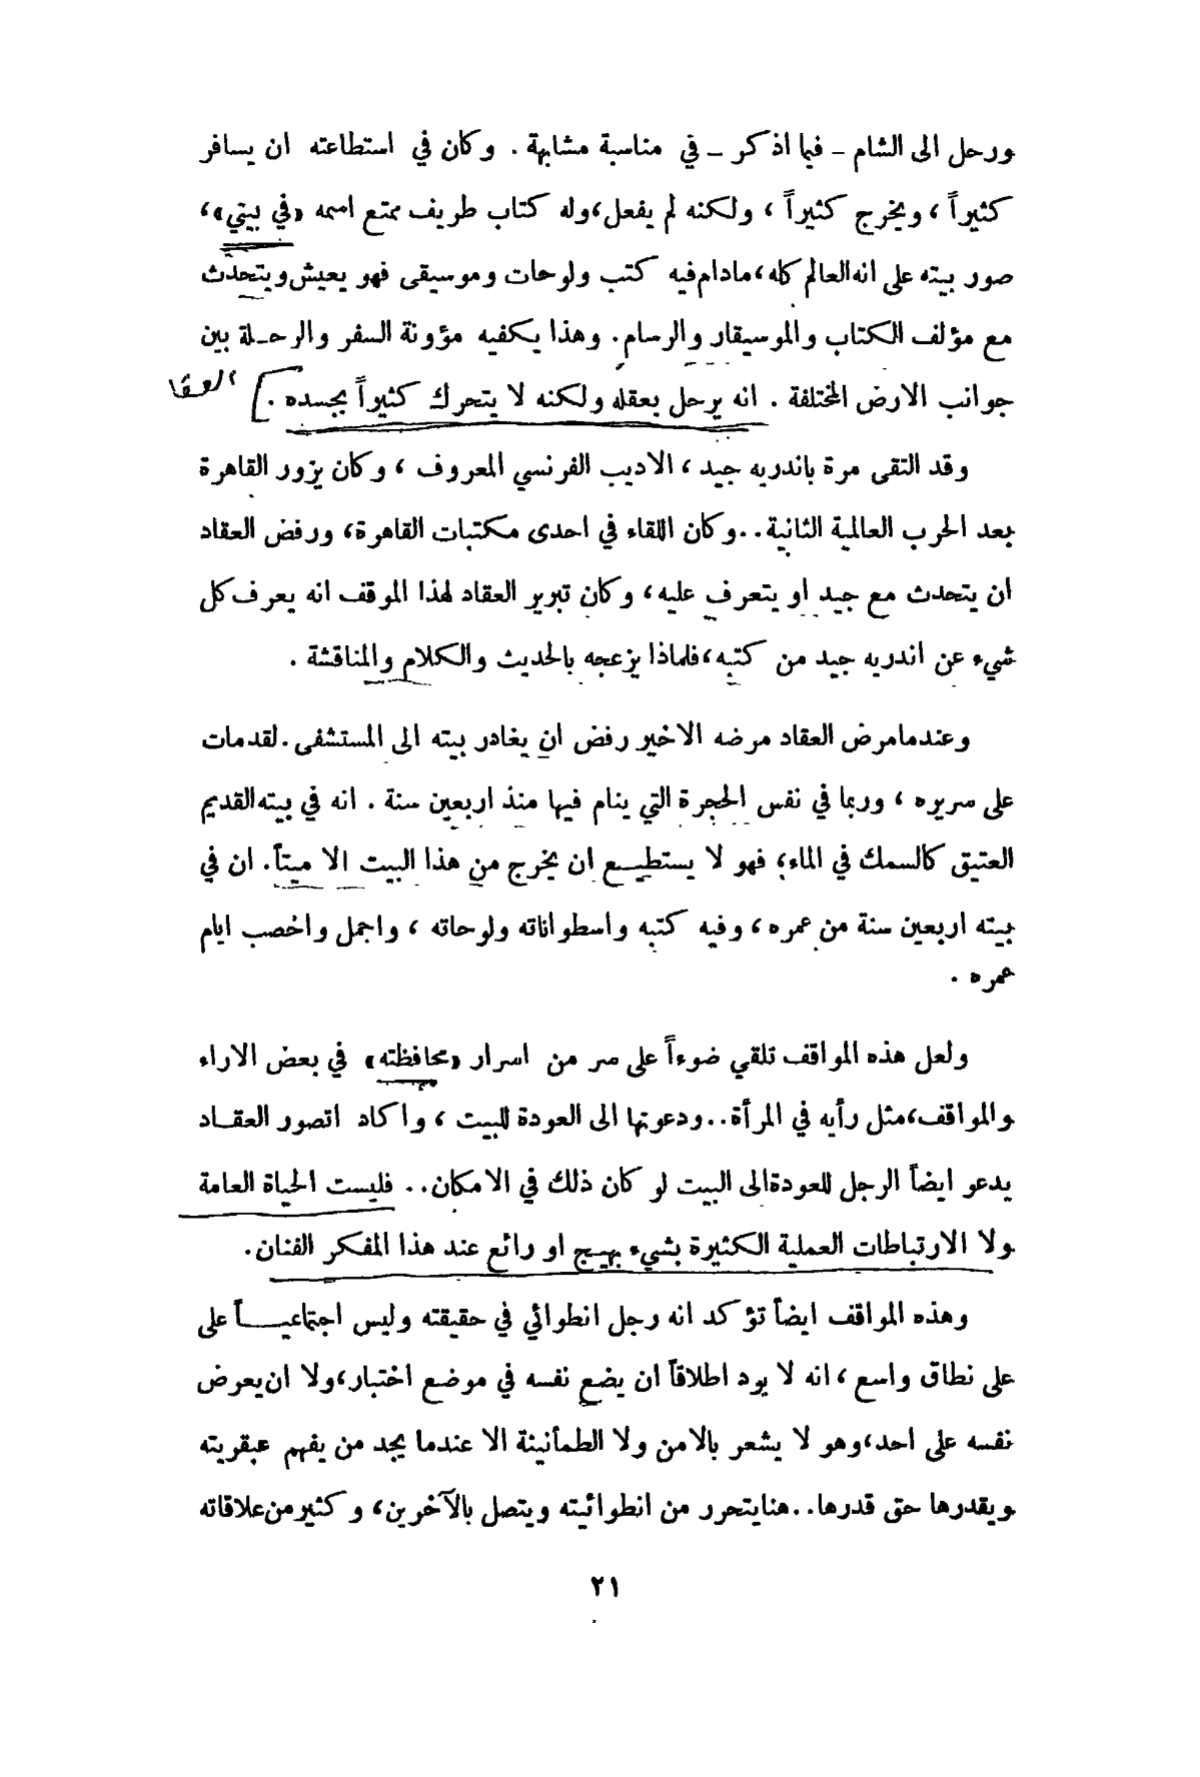 ورحل الى الشام ـ فيما اذكر ـ في مناسبة مشابهة . وكان في استطاعته ان يسافر
كثيراً ، ويخرج كثيراً ، ولكنه لم يفعل، وله كتاب طريف ممتع اسمه «في بيتي»،
صور بيته على انه العالم كله، مادام فيه كتب ولوحات وموسيقى فهو يعيش ويتحدث
مع مؤلف الكتاب والموسيقار والرسام. وهذا يكفيه مؤونة السفر والرحلة بين
جوانب الارض المختلفة . انه يرحل بعقله ولكنه لا يتحرك كثيراً بجسده .
وقد التقى مرة باندريه جيد ، الاديب الفرنسي المعروف ، وكان يزور القاهرة
بعد الحرب العالمية الثانية.. وكان اللقاء في احدى مكتبات القاهرة، ورفض العقاد
ان يتحدث مع جيد او يتعرف عليه، وكان تبرير العقاد لهذا الموقف انه يعرف كل
شيء عن اندريه جيد من كتبه، فلماذا يزعجه بالحديث والكلام والمناقشة .
وعندما مرض العقاد مرضه الاخير رفض ان يغادر بيته الى المستشفى. لقد مات
على سريره ، وربما في نفس الحجرة التي ينام فيها منذ اربعين سنة . انه في بيته القديم
العتيق كالسمك في الماء، فهو لا يستطيع ان يخرج من هذا البيت الا ميتاً. ان في
بيته اربعين سنة من عمره ، وفيه كتبه واسطواناته ولوحاته ، واجمل واخصب ايام
عمره .
ولعل هذه المواقف تلقي ضوءاً على سر من اسرار «محافظته» في بعض الاراء
والمواقف، مثل رأيه في المرأة.. ودعوتها الى العودة للبيت ، واكاد اتصور العقاد
يدعو ايضاً الرجل للعودة الى البيت لو كان ذلك في الامكان.. فليست الحياة العامة
ولا الارتباطات العملية الكثيرة بشيء بهيج او رائع عند هذا المفكر الفنان.
وهذه المواقف ايضاً تؤكد انه رجل انطوائي في حقيقته وليس اجتماعيـاً على
على نطاق واسع ، انه لا يود اطلاقاً ان يضع نفسه في موضع اختبار، ولا ان يعرض
نفسه على احد، وهو لا يشعر بالامن ولا الطمأنينة الا عندما يجد من يفهم عبقريته
ويقدرها حق قدرها.. هنا يتحرر من انطوائيته ويتصل بالآخرين، وكثير من علاقاته
٢١